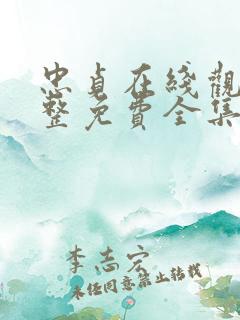 忠貞在綫觀
整免費全集
李志宏
未經同意禁止轉載